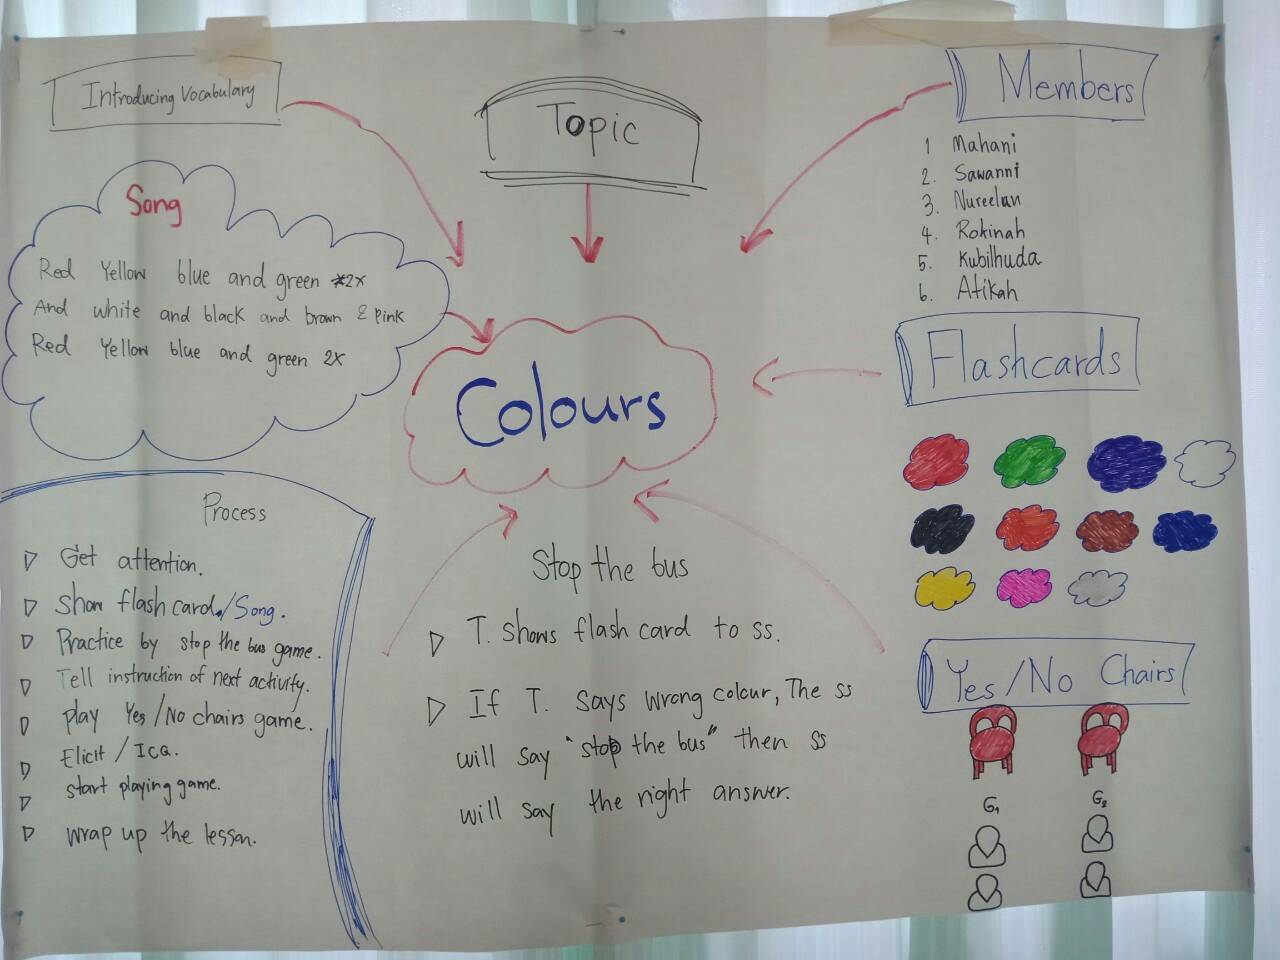 Introducing Vocabulary
Song
Red Yellow blue and green *2x
And white and black and brown & pink
Red Yellow blue and green 2x
Process
Get attention.
Show flash card./Song.
Practice by stop the bus game.
Tell instruction of next activity.
play Yes/No chairs game.
Elicit / ICQ.
start playing game.
wrap up the lesson.
Topic
Colours
Stop the bus
T. shows flash card to ss.
If T. says wrong colour, The ss
will say "stop the bus" then ss
will say the right answer.
Members
1 Mahani
2. Sawanni
3. Nureelan
4. Rokinah
5. Kubilhuda
6. Atikah
Flashcards
Yes/No Chairs
G1 G2